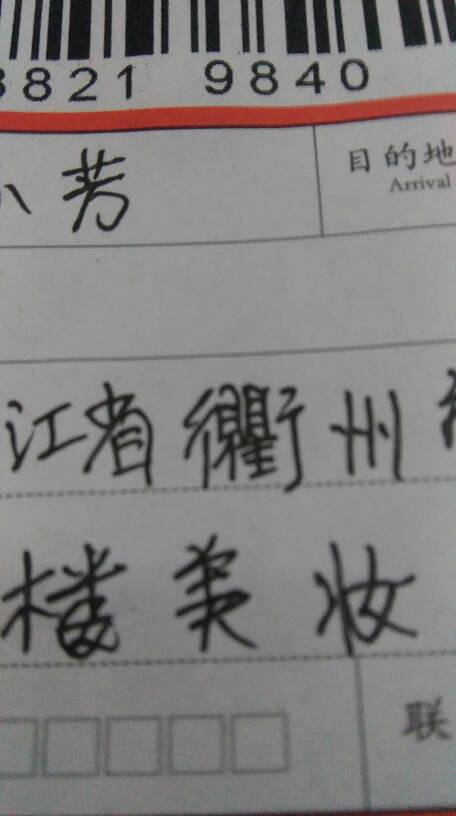 8821 9840
小芳
目的地
Arrival
江省衢州
楼美妆
联